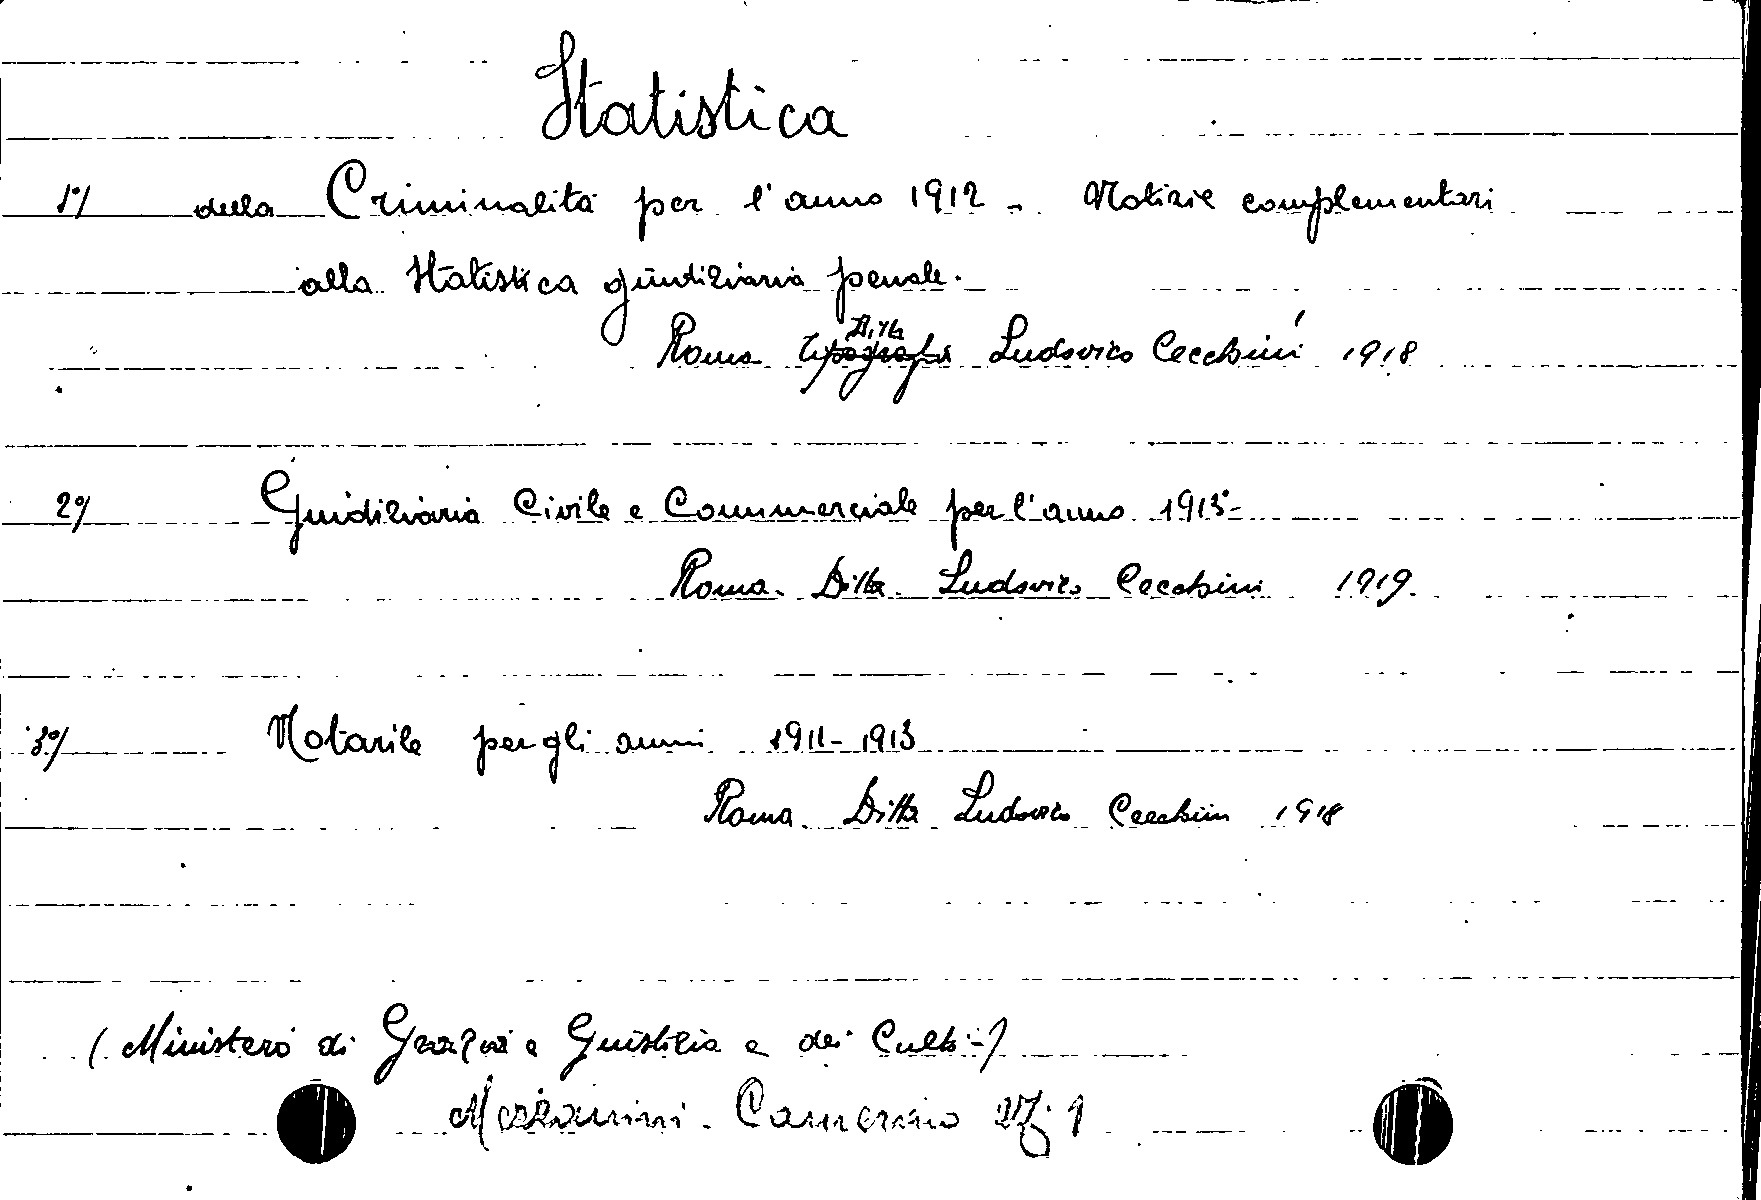 Statistica
1°/ della Criminalità per l'anno 1912 - Notizie complementari
alla Statistica giudiziaria penale.
Ditta
Roma Tipografia Ludovico Cecchini 1918
2°/ Giudiziaria Civile e Commerciale per l'anno 1913-
Roma. Ditta Ludovico Cecchini 1919.
3°/ Notarile per gli anni 1911-1913
Roma. Ditta Ludovico Cecchini 1918
(Ministero di Grazia e Giustizia e dei Culti-)
Mezzanini. Camerino